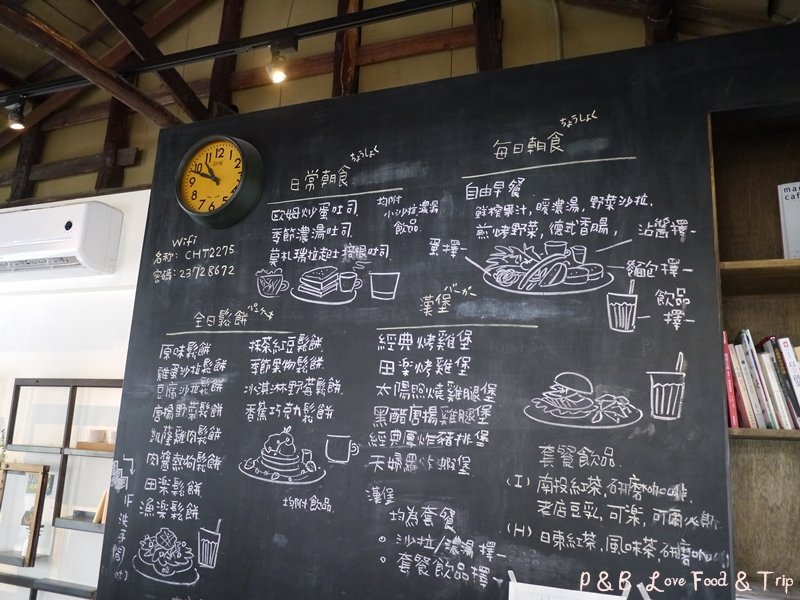 Wifi
名称: CHT2275
密碼: 23728672
日常朝食 ちょうしょく
歐姆炒蛋吐司
季節濃湯吐司
莫札瑞拉起士搭根吐司
均附
小沙拉濃湯
飲品
毎日朝食 ちょうしょく
自由早餐
鮮榨果汁, 暖濃湯, 野菜沙拉,
煎烤野菜, 德式香腸,
蛋擇一
沾醬擇一
麵包擇一
飲品
擇一
全日鬆餅
原味鬆餅
雞蛋沙拉鬆餅
豆腐沙拉鬆餅
唐揚野菜鬆餅
凱薩雞肉鬆餅
肉醬熱狗鬆餅
田楽鬆餅
漁楽鬆餅
抹茶紅豆鬆餅
季節果物鬆餅
冰淇淋野莓鬆餅
香蕉巧克力鬆餅
均附飲品
漢堡 バーガー
經典烤雞堡
田楽烤雞堡
太陽照燒雞腿堡
黑醋唐揚雞腿堡
經典厚炸豬排堡
天婦羅炸蝦堡
漢堡
均為套餐
。沙拉/濃湯擇一
。套餐飲品擇一
套餐飲品
(I) 南投紅茶, 研磨
老店豆乳, 可樂, 可爾必
(H) 日東紅茶, 風味茶, 研磨
洗手間
P & B Love Food & Trip